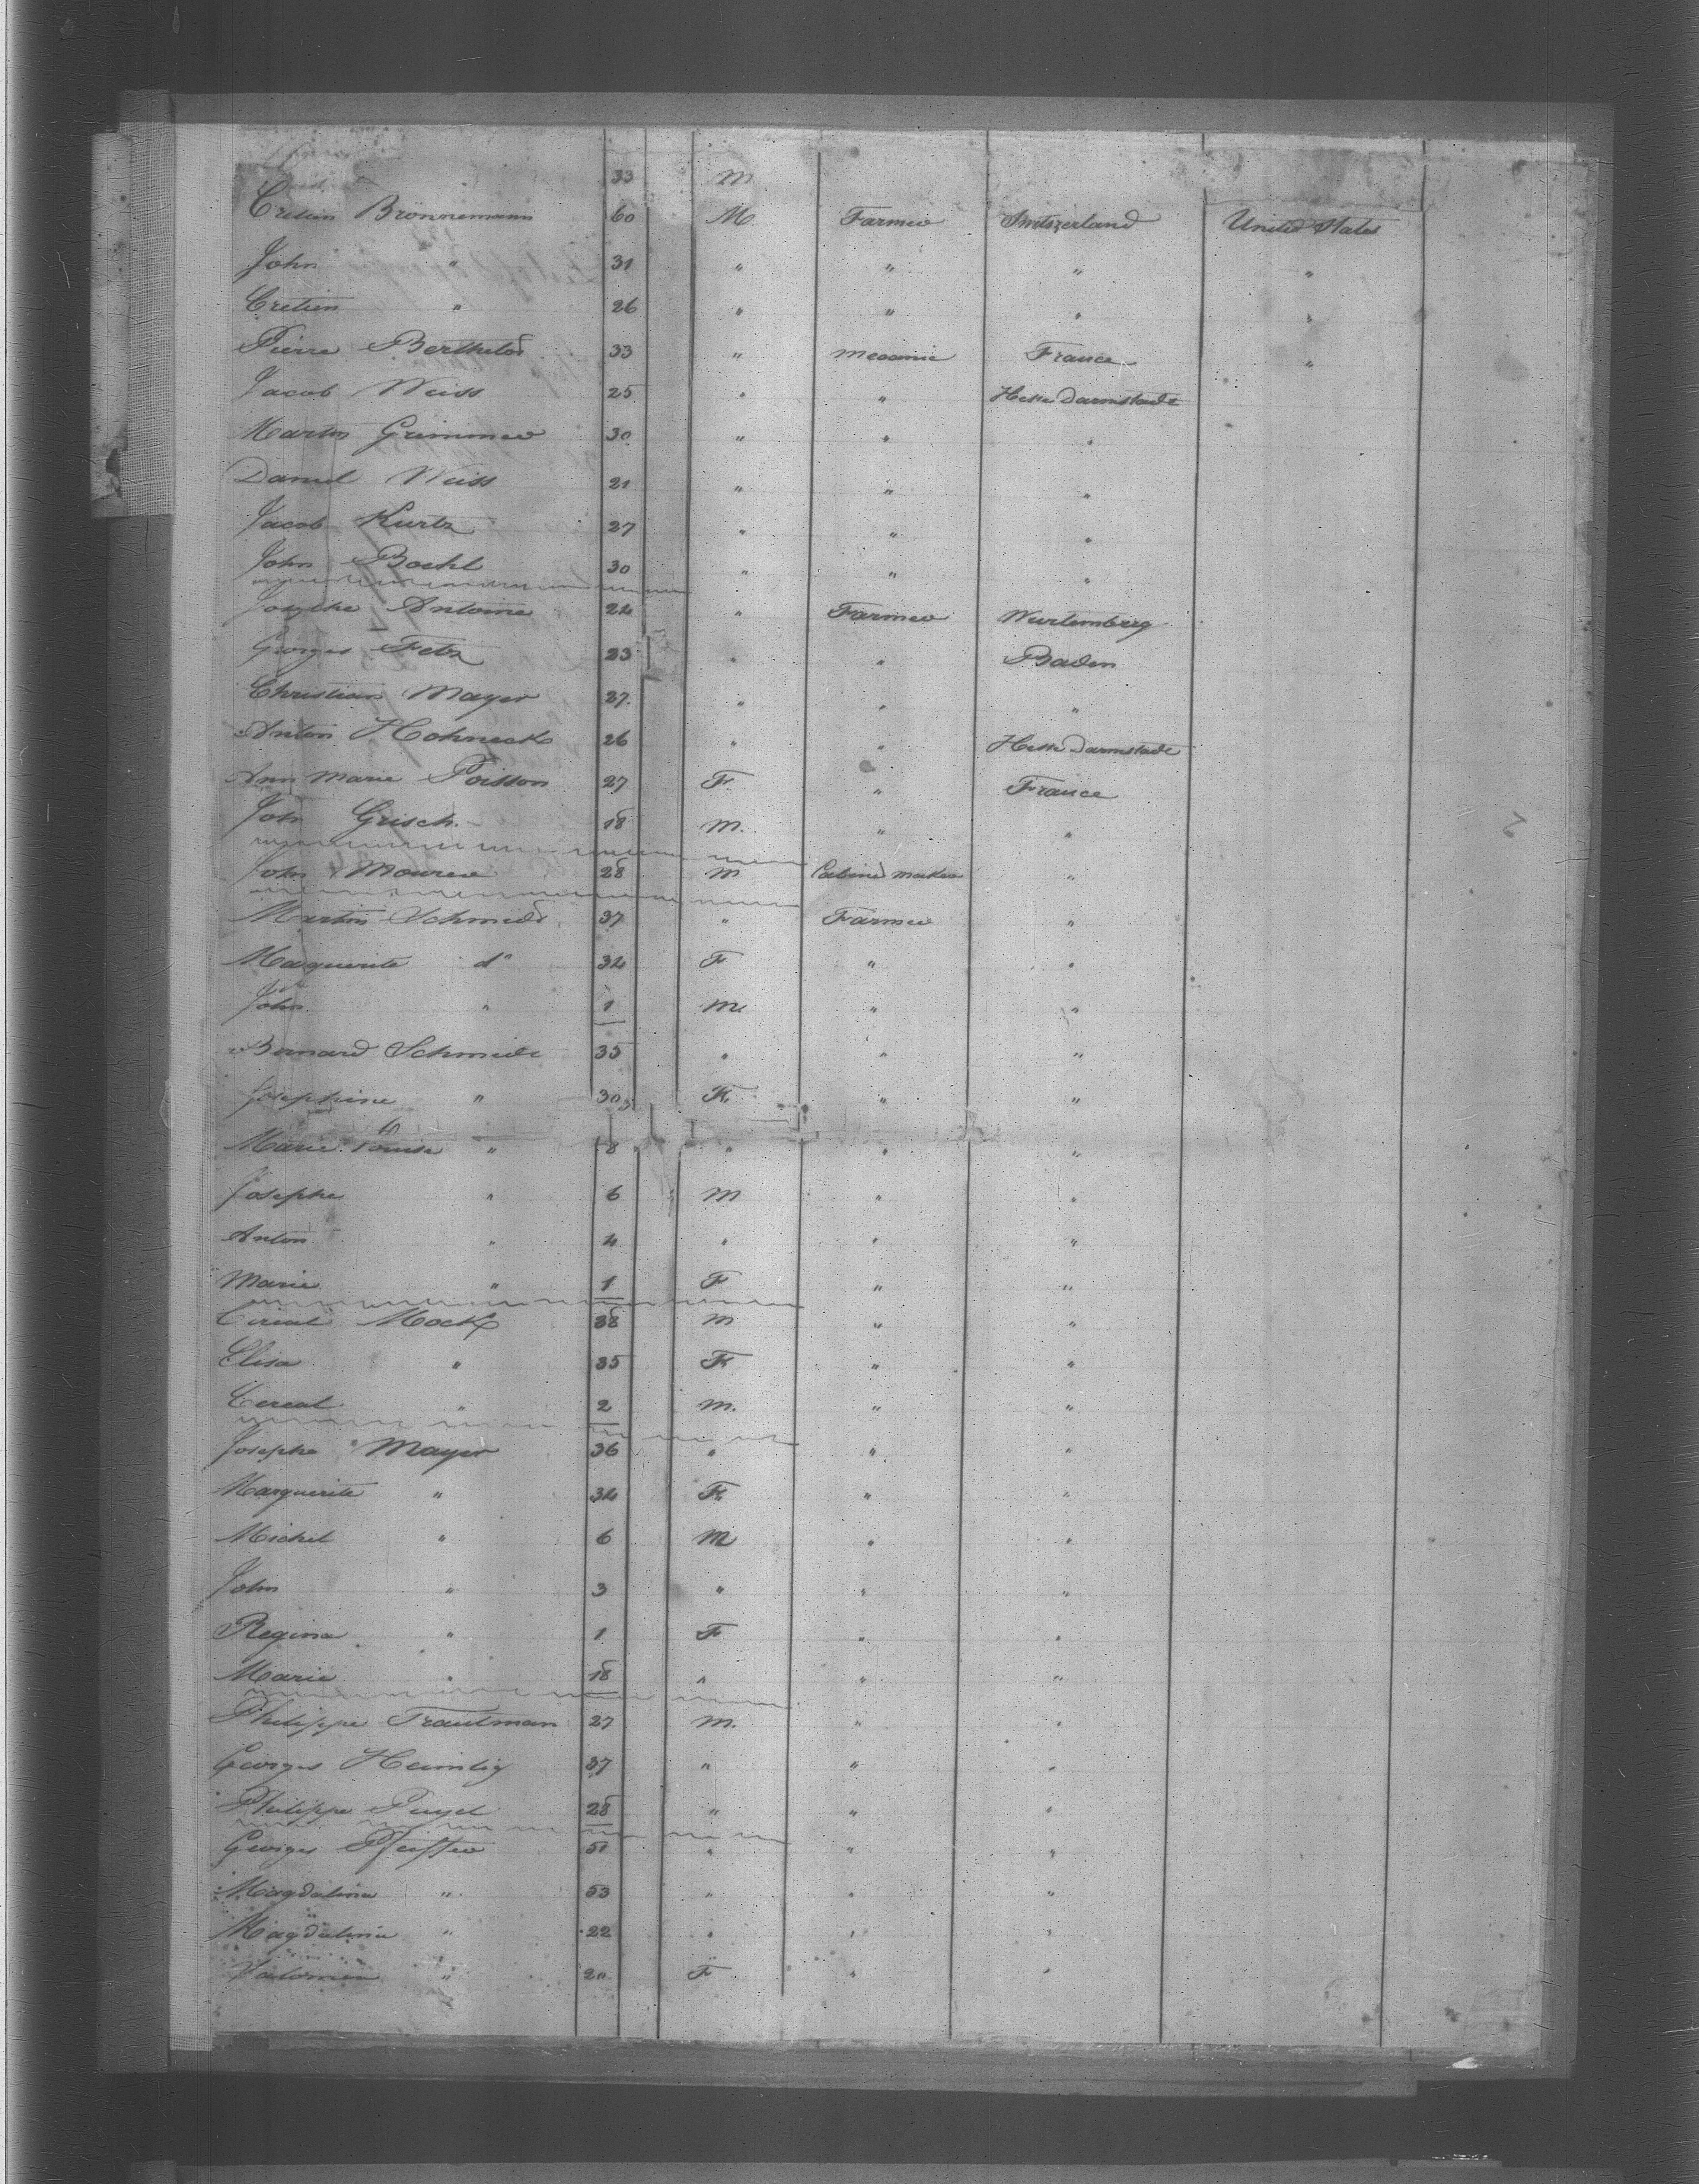 33 M
Cretien Brönnemann 60 M. Farmer Switszerland United States
John " 31 " " " "
Cretien " 26 " " " "
Pierre Berthelot 33 " Mecanic France "
Jacob Weiss 25 " " Hesse Darmstadt
Martin Grimmer 30 " " "
Daniel Weiss 21 " " "
Jacob Kurtz 27 " " "
John Boehl 30 " " "
Josephe Antoine 24 " Farmer Wurtemberg
Georges Fetz 23 " " Baden
Christian Mayer 27. " " "
Anton Hohneck 26 " " Hesse Darmstadt
Ann Marie Poisson 27 F. " France
John Grisch. 18 M. " "
John Mourer 28 M Cabinet maker "
Martin Schmidt 37 " Farmer "
Marguerite d° 34 F " "
John " 1 M. " "
Bernard Schmidt 35 " " "
Josephine " 30 F. " "
Marie Louise " 8 " " "
Josephe " 6 M " "
Anton " 4 " " "
Marie " 1 F " "
Mock 38 M " "
Elisa " 35 F " "
" 2 M. " "
Josephe Mayer 36 " " "
Marguerite " 34 F. " "
Michel " 6 M " "
John " 3 " " "
Regina " 1 F " "
Marie " 18 " " "
Philippe Trautman 27 M. " "
Georges Heimlig 37 " " "
Philippe 28 " " "
Georges Pfeiffer 51 " " "
Magdalina " 53 " " "
Magdalina " 22 " " "
Salomea " 20 F " "